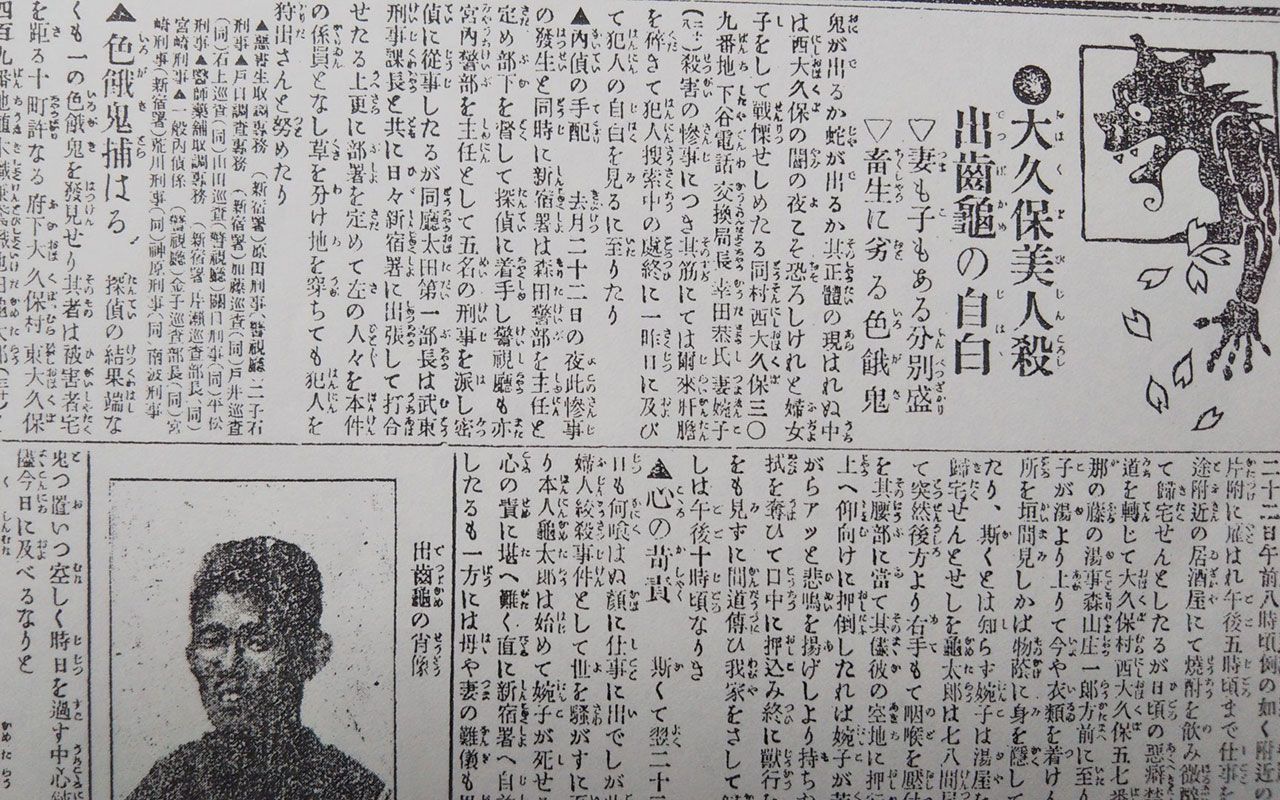 ●大久保美人殺
出齒龜の自白
▽妻も子もある分別盛
▽畜生に劣る色餓鬼
鬼が出るか蛇が出るか其正體の現はれぬ中
は西大久保の闇の夜こそ恐ろしけれと婦女
子をして戰慄せしめたる同村西大久保三〇
九番地下谷電話交換局長幸田恭氏妻婉子
殺害の慘事につき其筋にては爾來肝膽
を碎きて犯人搜索中の處終に一昨日に及び
て犯人の自白を見るに至りたり
▲內偵の手配 去月二十二日の夜此慘事
の發生と同時に新宿署は森田警部を主任と
定め部下を督して探偵に着手し警視廳も亦
宮內警部を主任として五名の刑事を派し密
偵に從事したるが同廳太田第一部長は武東
刑事課長と共に日々新宿署に出張して打合
せたる上更に部署を定めて左の人々を本件
の係員となし草を分け地を穿ちても犯人を
狩出さんと努めたり
▲惡書生取調專務(新宿署)原田刑事(警視廳)二子石
刑事▲戶口調査專務(新宿署)加藤巡査(同)戶井巡査
(同)石上巡査(同)山田巡査(警視廳)關口刑事(同)平松
刑事▲醫師藥舖取調專務(新宿署)片瀨巡査部長(同)
宮崎刑事▲一般內偵係(警視廳)金子巡査部長(同)宮
崎刑事(新宿署)荒川刑事(同)神原刑事(同)南波刑事
▲色餓鬼捕はる 探偵の結果端な
くも一の色餓鬼を發見せり其者は被害者宅
を距る十町許なる府下大久保村東大久保
四百九番地植木職
二十二日午前八時例の如く附近の
片附に雇はれ午後五時頃まで仕事を
途附近の居酒屋にて燒酎を飲み微醉
て歸宅せんとしたるが日頃の惡癖
道を轉じて大久保村西大久保五七番
那の藤の湯事森山庄一郞方前に至り
子が湯より上りて今や衣類を着けん
所を垣間見しかば物蔭に身を隱して
たり、斯くとは知らず婉子は湯屋を
歸宅せんとせしを龜太郞は七八間
て突然後方より右手もて咽喉を壓
を其腰部に當て其儘彼の空地に押
上へ仰向けに押倒したれば婉子が苦
がらアッと悲鳴を揚げしより持ち
拭を奪ひて口中に押込み終に獸行
をも見ずに間道傳ひ我家をさして
しは午後十時頃なりき
▲心の苛責 斯くて翌二十三
日も何喰はぬ顏に仕事に出でしが
婦人絞殺事件として世を騷がすに
り本人龜太郞は始めて婉子が死せる
心の責に堪へ難く直に新宿署へ自
したるも一方には母や妻の難儀も
出齒龜の肖像
鬼つ置いつ空しく時日を過す中心
儘今日に及べるなりと